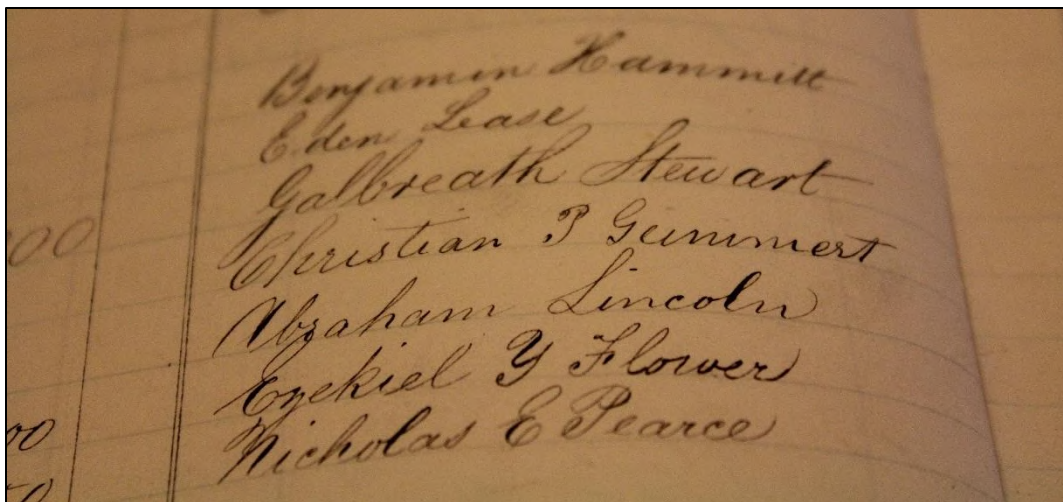 Benjamin Hammitt
Eden Lease
Galbreath Stewart
00 Christian P Gummert
Abraham Lincoln
Ezekiel Y Flower
00 Nicholas E Pearce